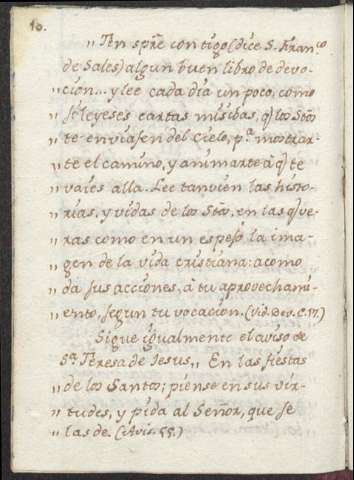 10.
„ Ten spre̅ con tigo (dice S. Franco
de Sales) algun buen libro de devo-
„ cion... y lee cada dia un poco, como
„ si leyeses cartas missibas, q̃ los Stõs
„ te enviasen del Cielo, pa. mostrar-
„ te el camino, y animarte à q̃ te
„ vaies alla. Lee tanvien las histo-
„ rias, y vidas de los Stõs, en las q̃ ve-
„ ras como en un espejo la ima-
„ gen de la vida cristiana: acomo
„ da sus acciones, à tu aprovechami-
„ ento, segun tu vocacion. (Vid. Dev. C. 17.)
Sigue igualmente el aviso de
Sta. Teresa de Jesus „ En las fiestas
„ de los Santos; piense en sus vir-
„ tudes, y pida al Señor, que se
„ las de. (Avis. 55.)